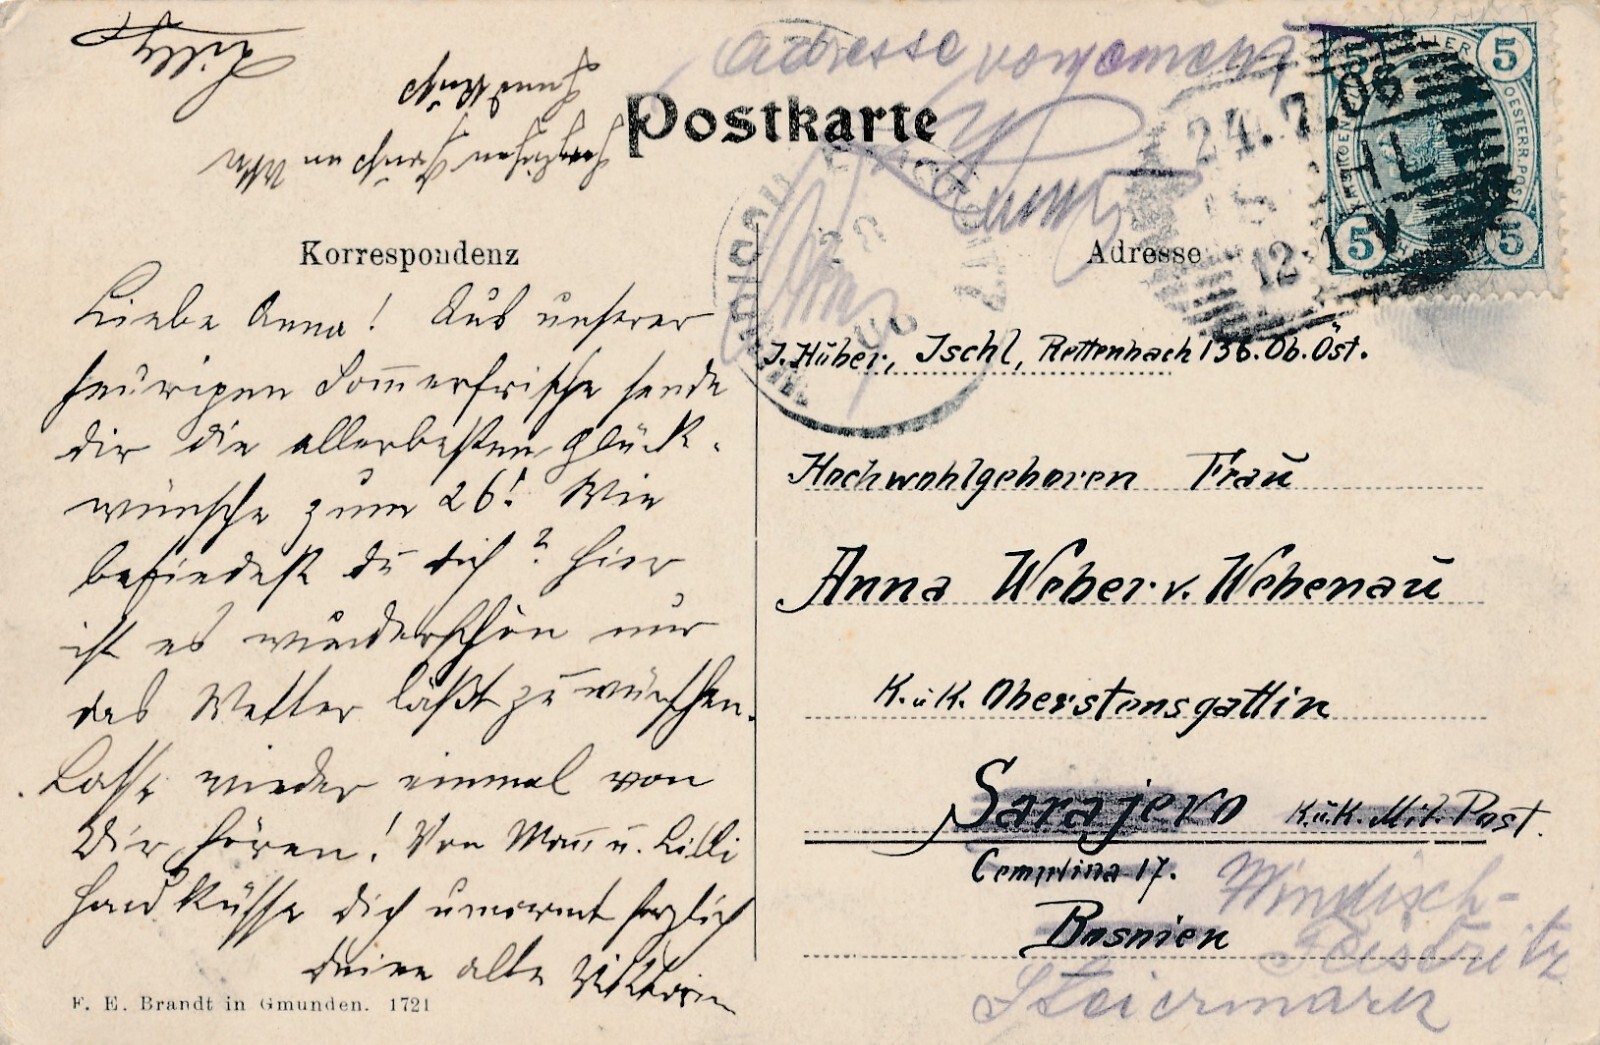 Postkarte
Adresse
24.7.06
5
5
5
5
Korrespondenz
Adresse
Liebe Anna! Aus unserer
heurigen Sommerfrische sende
dir die allerbesten Glück-
wünsche zum 26! Wie
befindest du dich? Hier
ist es wunderschön nur
das Wetter läßt zu wünschen.
Lasse wieder einmal von
Dir hören! Von Mam̄ u. Lilli
Handküsse dich umarmt herzlich
deine alte Viktorin
Lilly
Handkuß
Herzlichen
J. Huber, Ischl, Rettenbach 136. Ob. Öst.
Hochwohlgeboren Frau
Anna Weber v. Webenau
K. u K. Oberstensgattin
Sarajevo K. u K. Mil. Post.
17.
Bosnien
Windisch-
Feistritz
Steiermark
F. E. Brandt in Gmunden. 1721